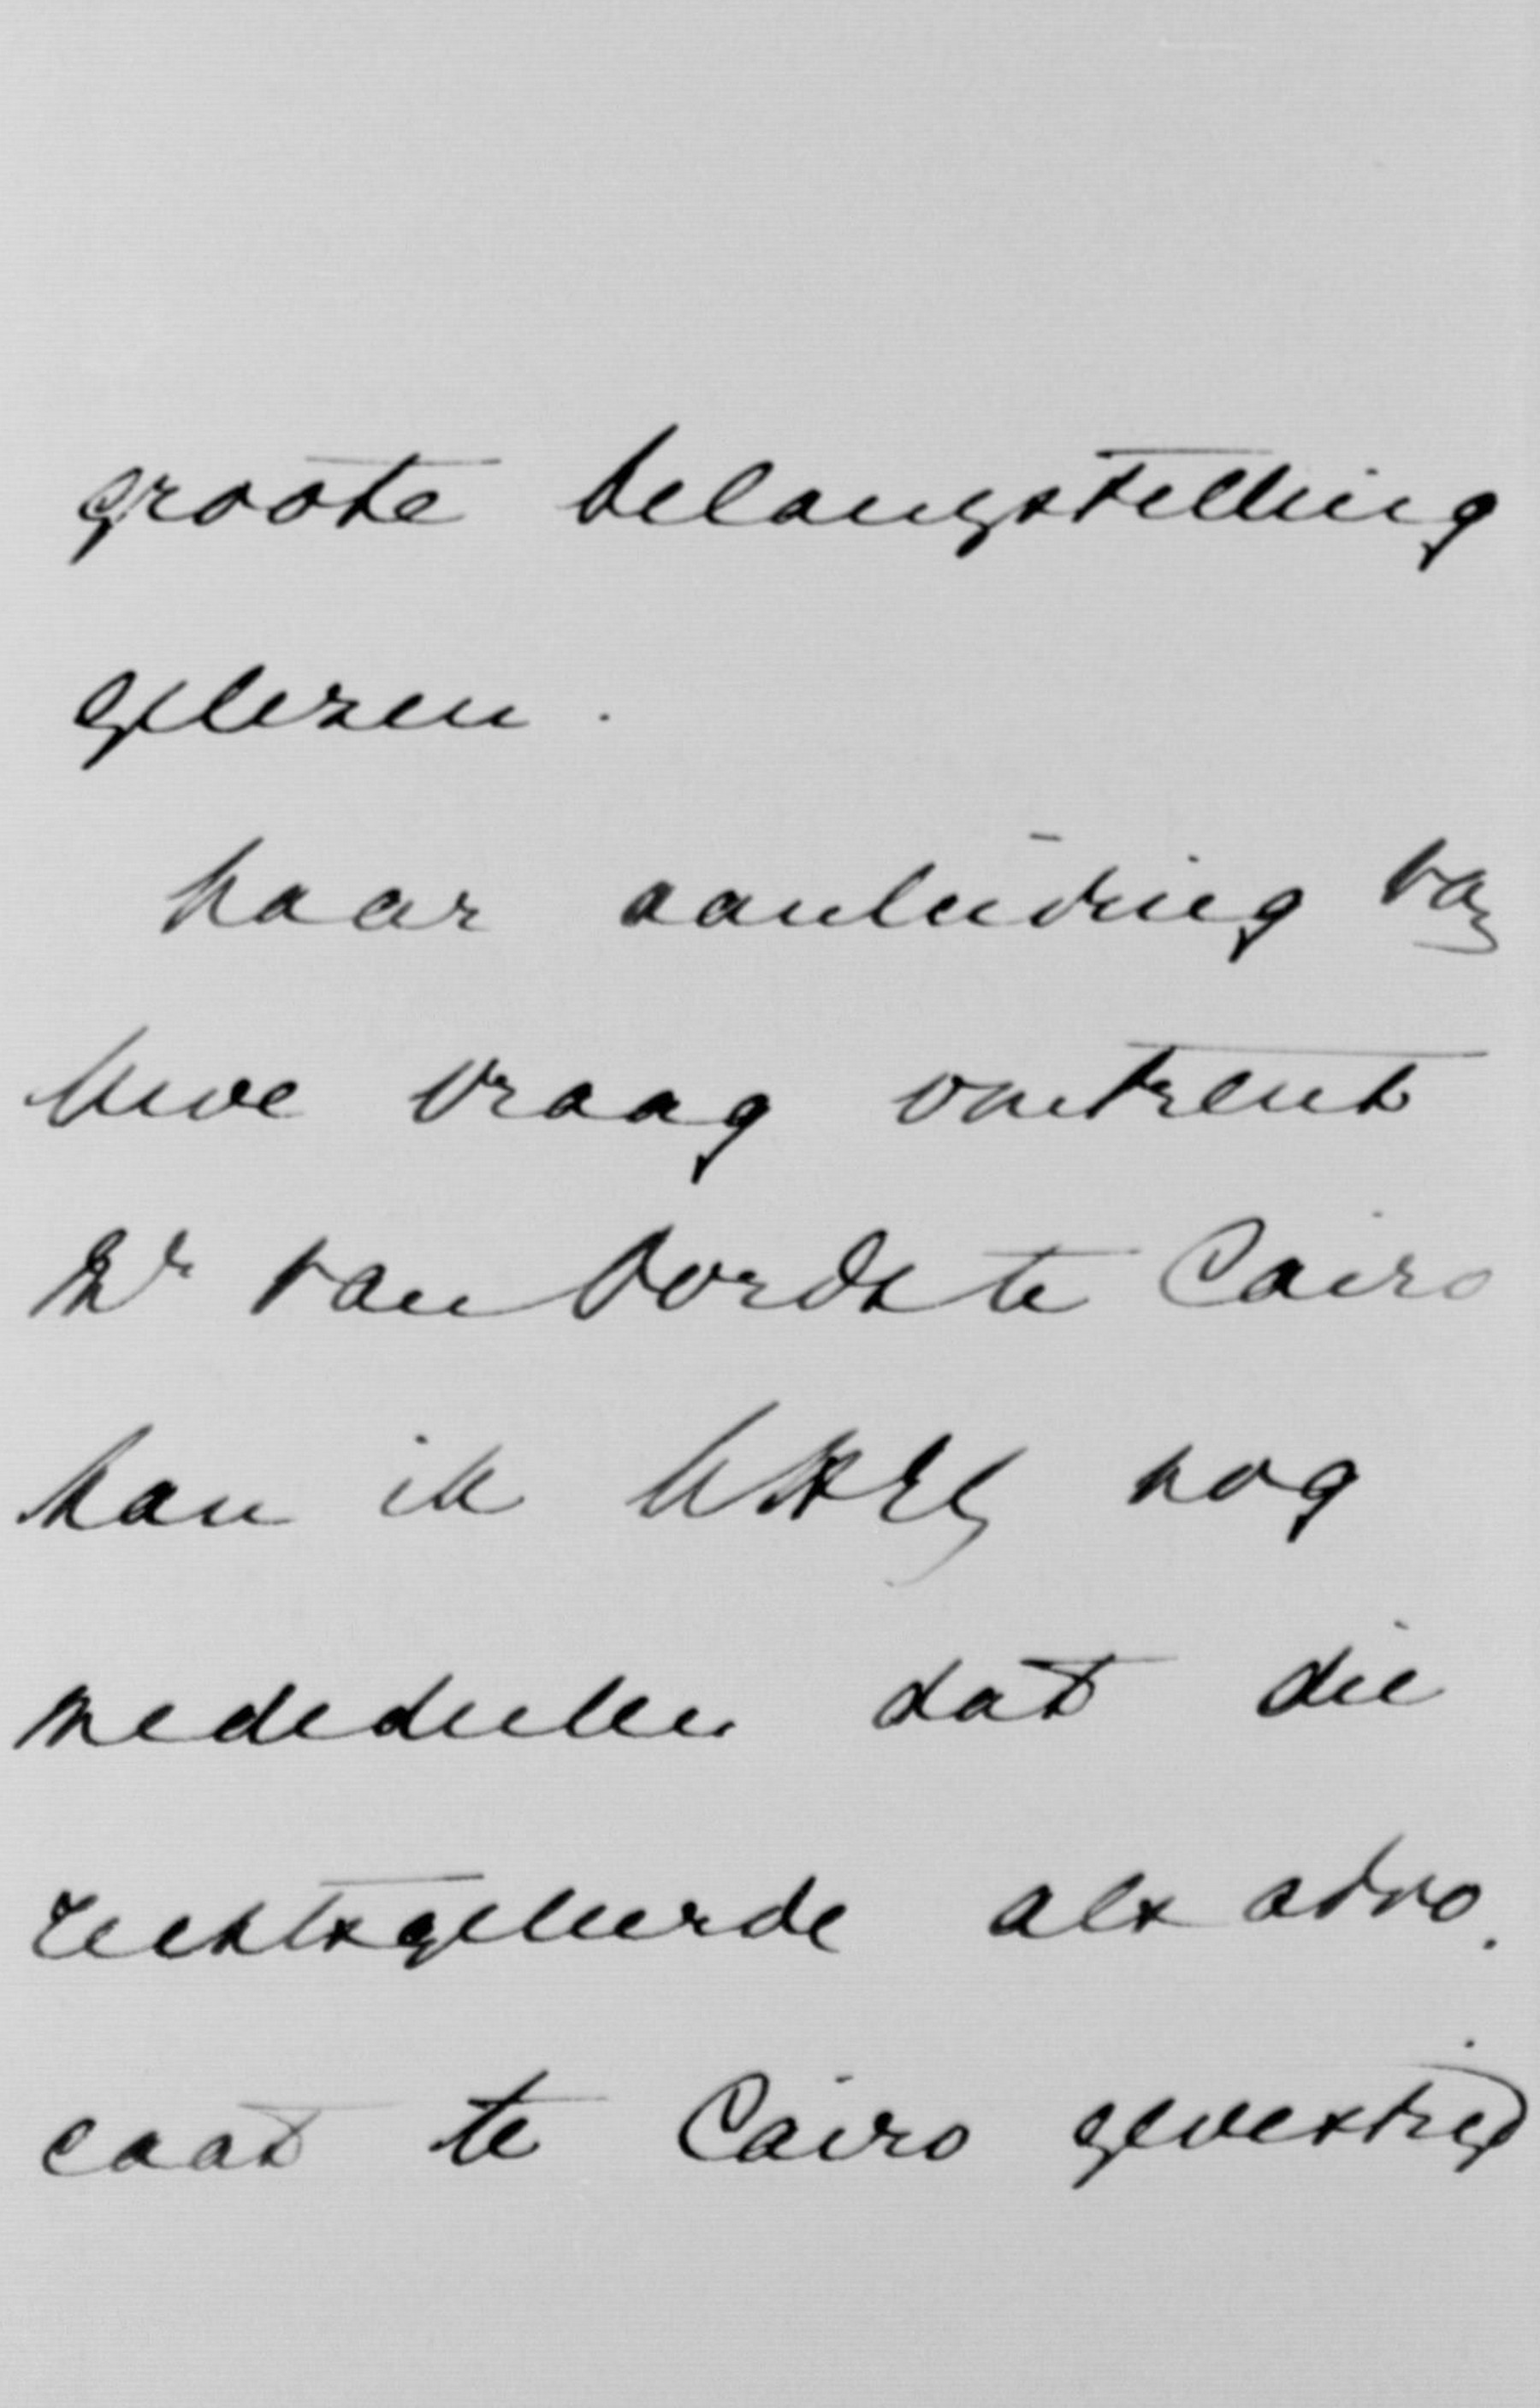 groote belangstelling
gelezen.
Naar aanleiding van
Uwe vraag omtrent
Mr van Dordt te Cairo
kan ik UHEG nog
mededeelen dat die
rechtsgeleerde als advo.
caat te Cairo gevestigd